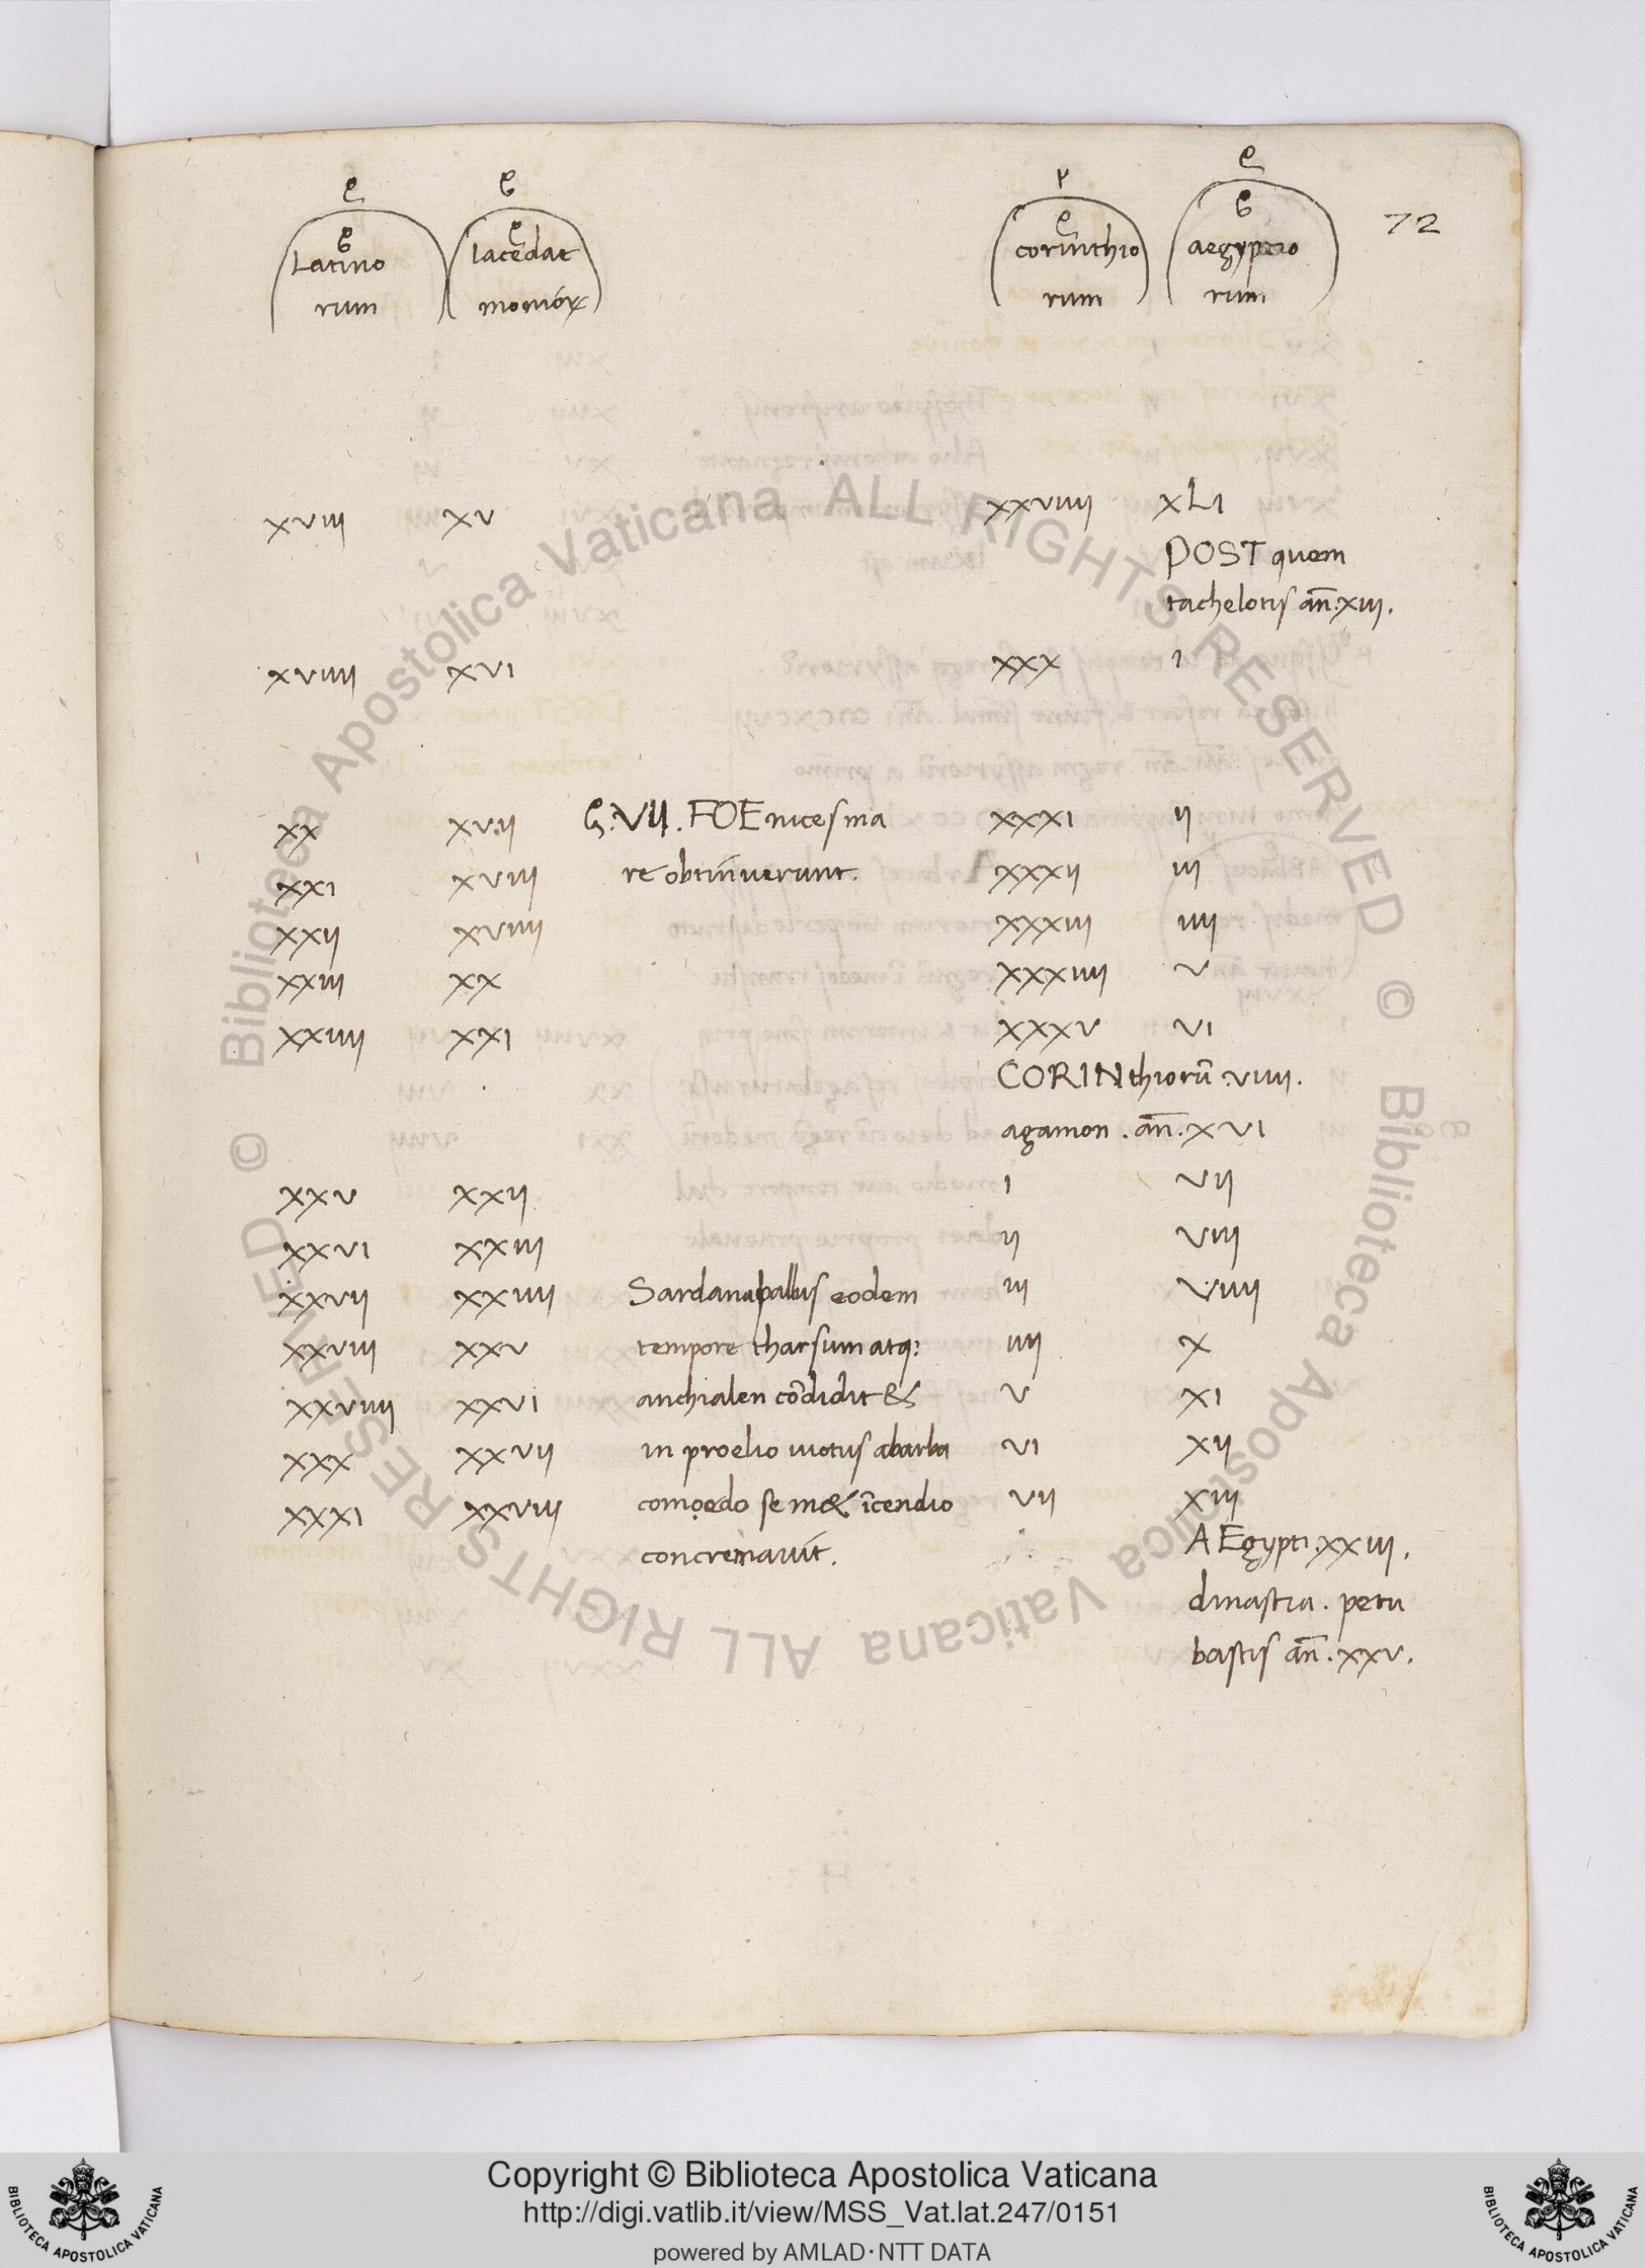 72
Latino
rum
lacedae
monioꝝ
corinthio
rum
aegyptio
rum
XVIII XV XXVIIII XLI
POST quem
tachelotis an̄. XIII.
XVIIII XVI XXX I
XX XVII VII. FOEnices ma XXXI II
XXI XVIII re obtinuerunt. XXXII III
XXII XVIIII XXXIII IIII
XXIII XX XXXIIII V
XXIIII XXI XXXV VI
CORINthiorū. VIIII.
agamon. an̄. XVI
XXV XXII I VII
XXVI XXIII II VIII
XXVII XXIIII Sardanapallus eodem III VIIII
XXVIII XXV tempore tharsum atq; IIII X
XXVIIII XXVI anchialen cōdidit & V XI
XXX XXVII in proelio uictus abarba VI XII
XXXI XXVIII comoedo sem& īcendio VII XIII
concremauit.
AEgypti. XXIII.
dinastia. petu
bastis an̄. XXV.
© Biblioteca Apostolica Vaticana ALL RIGHTS RESERVED © Biblioteca Apostolica Vaticana ALL RIGHTS RESERVED
Copyright © Biblioteca Apostolica Vaticana
http://digi.vatlib.it/view/MSS_Vat.lat.247/0151
powered by AMLAD·NTT DATA
BIBLIOTECA APOSTOLICA VATICANA
BIBLIOTECA APOSTOLICA VATICANA